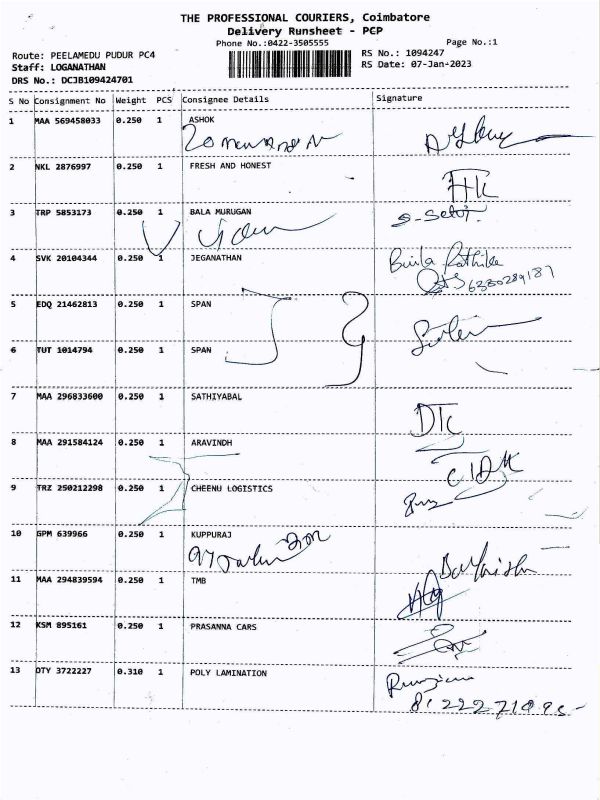 THE PROFESSIONAL COURIERS, Coimbatore
Delivery Runsheet - PCP
Phone No.:0422-3505555
Page No.:1
Route: PEELAMEDU PUDUR PC4
RS No.: 1094247
Staff: LOGANATHAN
RS Date: 07-Jan-2023
DRS No.: DCJB109424701
S No Consignment No Weight PCS Consignee Details Signature
1 MAA 569458033 0.250 1 ASHOK
2 NKL 2876997 0.250 1 FRESH AND HONEST
3 TRP 5853173 0.250 1 BALA MURUGAN
S-Selvi.
4 SVK 20104344 0.250 1 JEGANATHAN
6380289187
5 EDQ 21462813 0.250 1 SPAN
6 TUT 1014794 0.250 1 SPAN
7 MAA 296833600 0.250 1 SATHIYABAL
8 MAA 291584124 0.250 1 ARAVINDH
9 TRZ 250212298 0.250 1 CHEENU LOGISTICS
10 GPM 639966 0.250 1 KUPPURAJ
11 MAA 294839594 0.250 1 TMB
12 KSM 895161 0.250 1 PRASANNA CARS
13 OTY 3722227 0.310 1 POLY LAMINATION